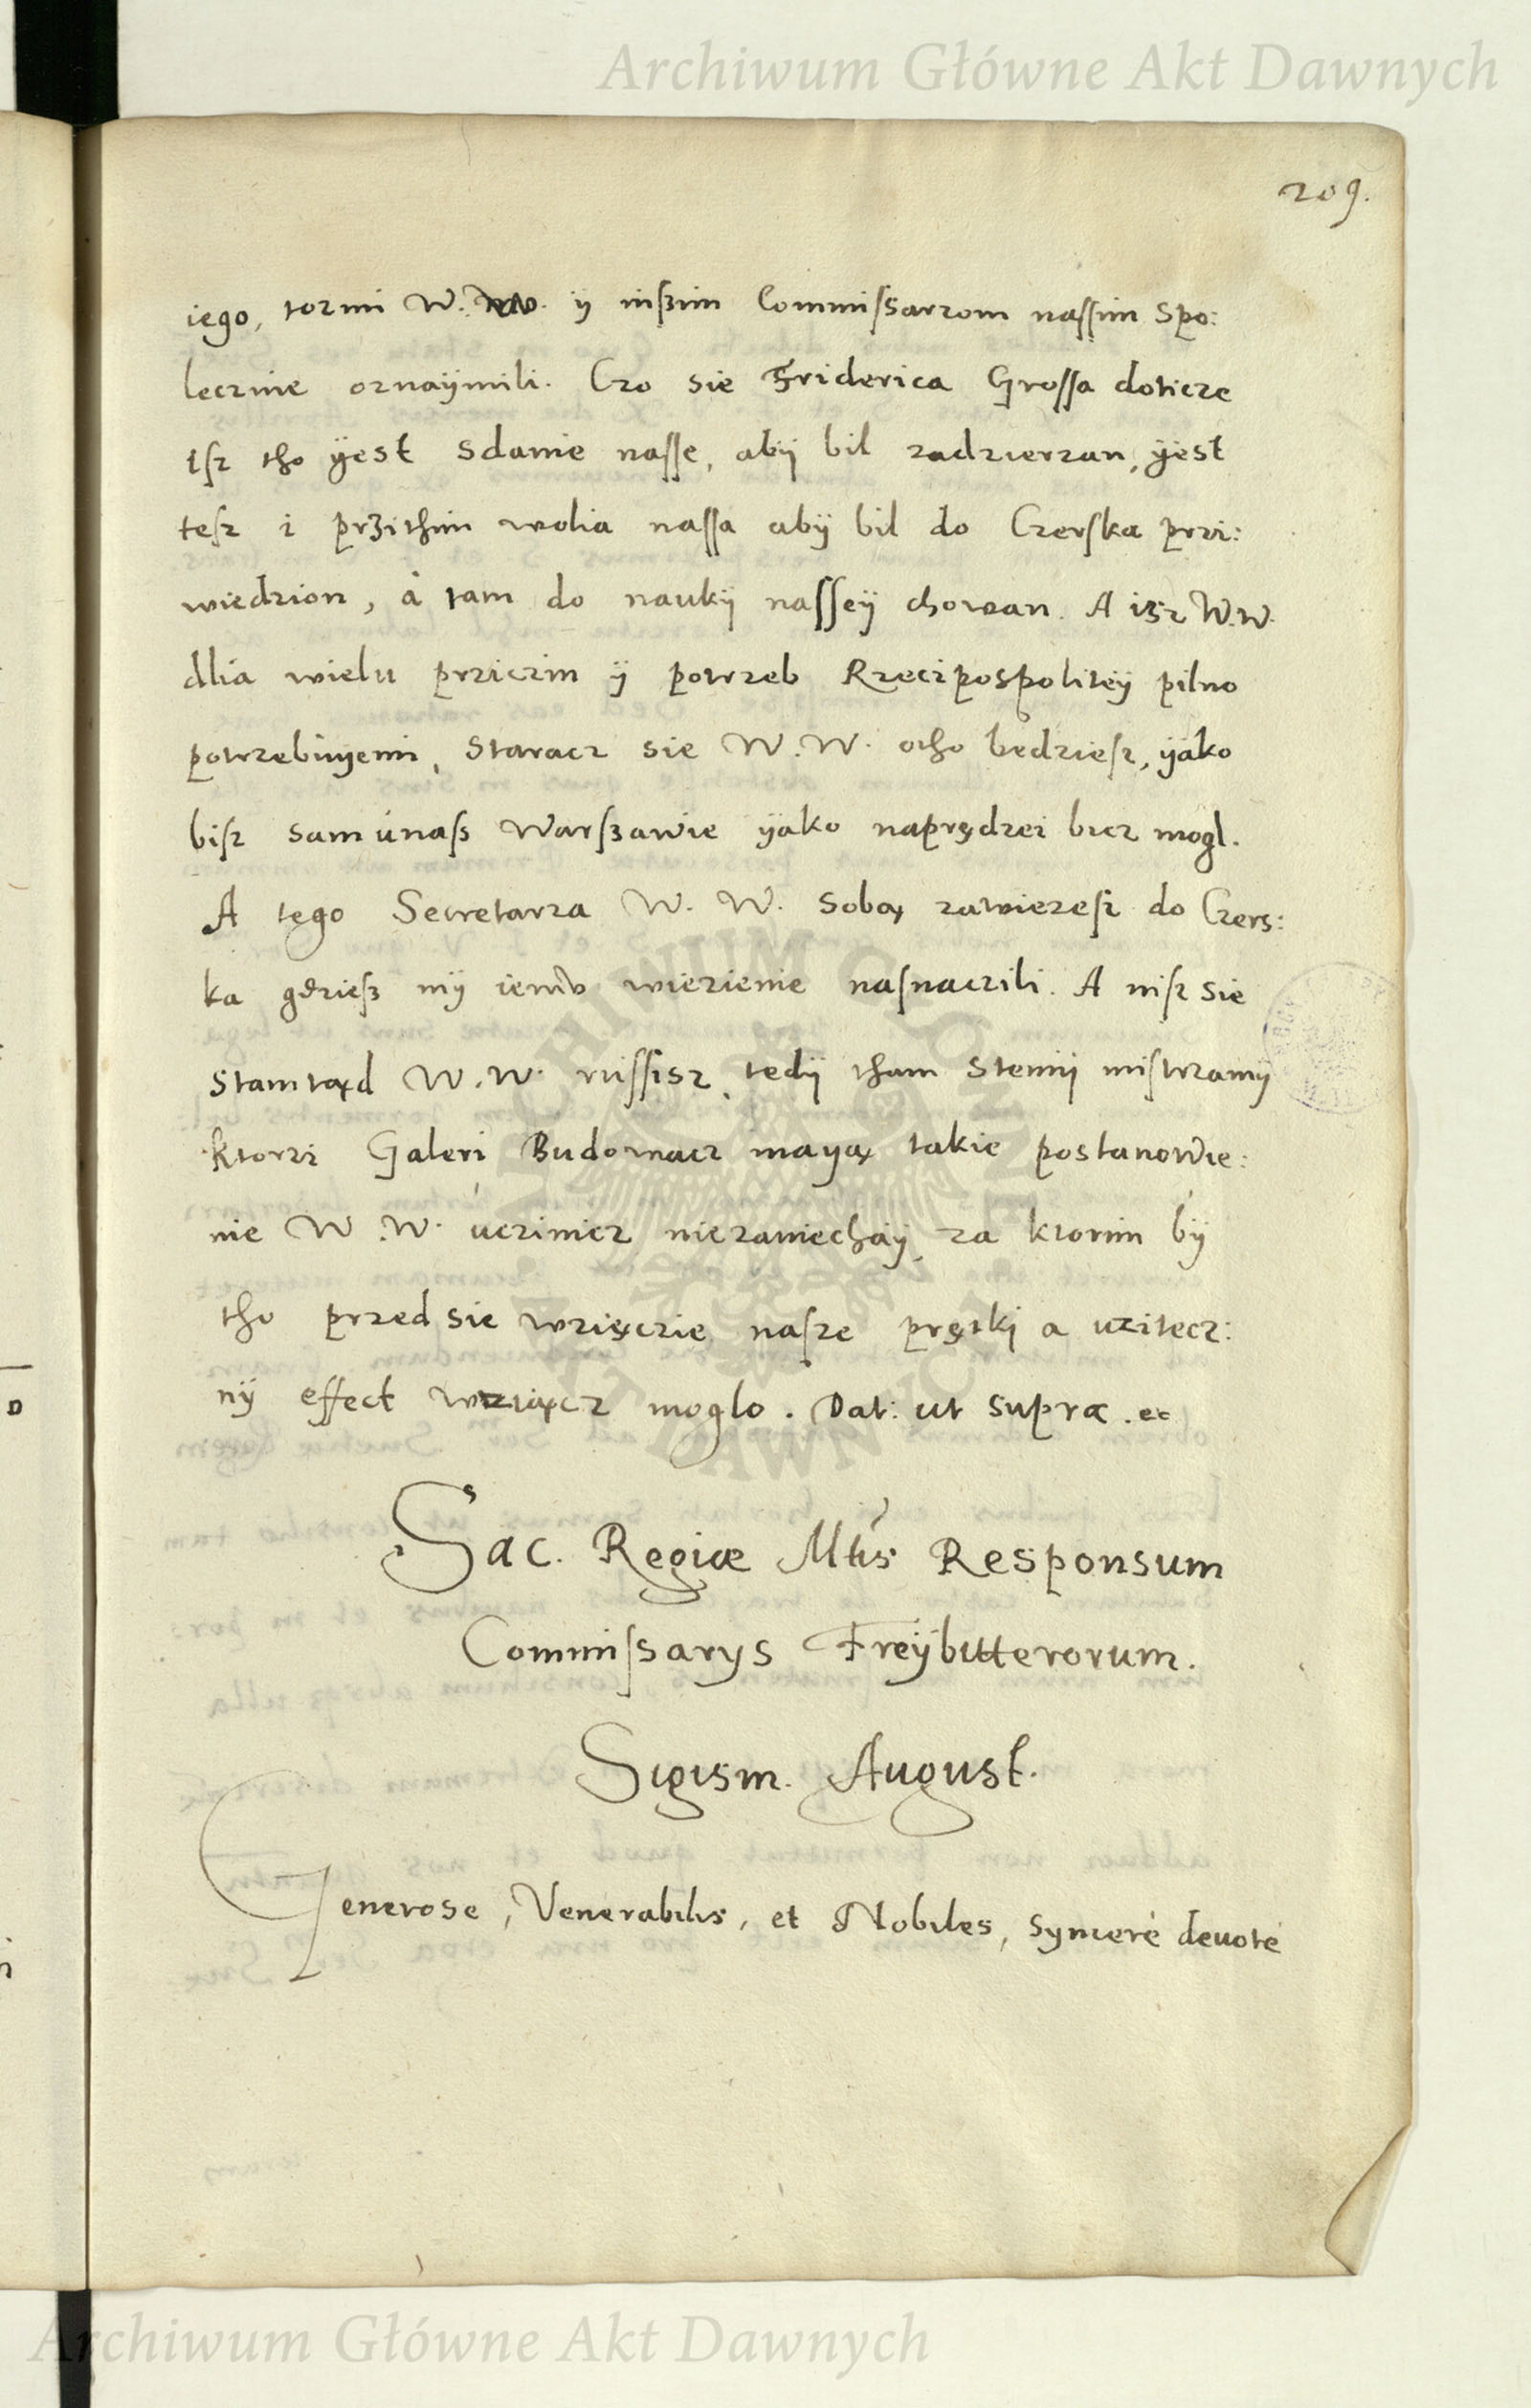 Archiwum Główne Akt Dawnych
209.
iego, tozmi W. W. ÿ inßim Commiſsarzom naſſim Spo:
lecznie oznaÿmili. Czo sie Friderica Groſſa doticze
Iſz tho ÿest sdanie naſſe, abÿ bil zadzierzan, ÿest
teſz i przithim wolia naſſa abÿ bil do Czerſka przi:
wiedzion, á tam do naukÿ naſſeÿ chowan. A isz W.W.
dlia wielu prziczin ÿ potrzeb Rzeczipospoliteÿ pilno
potrzebuÿemi, Staracz sie W.W. otho bedzieſz, ÿako
biſz sam únaſs Warſzawie ÿako naprędzei bicz mogl.
A tego Secretarza W. W. Sobą zawiezeſz do Czers:
ka gdzieſz mÿ iemú wiezienie naſnaczili. A niſz sie
stamtąd W.W. ruſſisz, tedÿ tham stemÿ miſtrzamÿ
ktorzi Galeri Budowacz mayą takie postanowie:
nie W.W. úczinicz niezaniechaÿ, za ktorim bÿ
tho przed sie wzięczie naſze prętkj a uzitecz:
nÿ effect wziącz moglo. Dat: ut supra. ec
Sac. Regiæ Mtis Responsum
Commiſsarys Freÿbitterorum.
Sigism. August.
Generose, Venerabilis, et Nobiles, Syncerè deuotè
ARCHIWUM GŁÓWNE
AKT DAWNYCH
Archiwum Główne Akt Dawnych